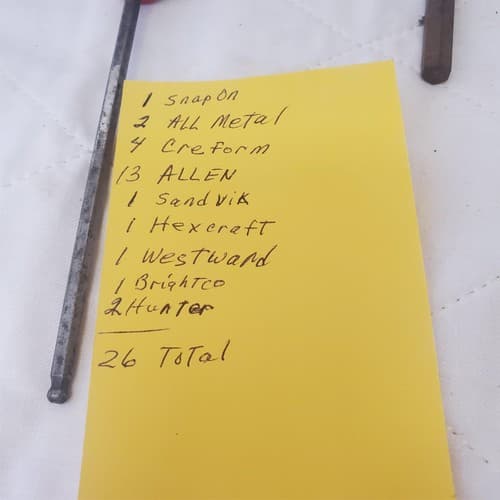 1 SnapOn
2 ALL Metal
4 Creform
13 ALLEN
1 Sandvik
1 Hexcraft
1 Westward
1 Brightco
2 Hunter
26 Total